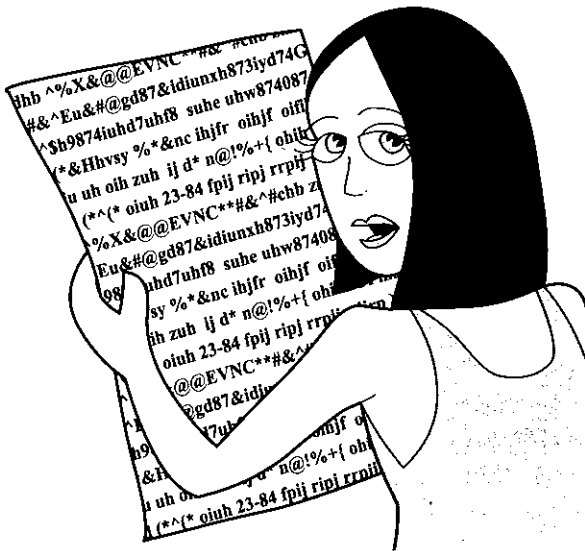 dhb ^%X&@@EVNC**#& #chb zb
#&^Eu&#@gd87&idiunxh873iyd74G
^$h9874iuhd7uhf8 suhe uhw874087
(*&Hhvsy %*&nc ihjfr oihjf oifl
u uh oih zuh ij d* n@!%+{ ohih
(*^(* oiuh 23-84 fpij ripj rrpij
%X&@@EVNC**#&^#chb z
Eu&#@gd87&idiunxh873iyd74
98 uhd7uhf8 suhe uhw87408
sy %*&nc ihjfr oihjf oif
ih zuh ij d* n@!%+{ ohi
oiuh 23-84 fpij ripj rrpij
@@EVNC**#&^#
@gd87&idiu
h9 d7uh
&H oihjf o
u uh oi d* n@!%+{ ohi
(*^(* oiuh 23-84 fpij ripj rrpij